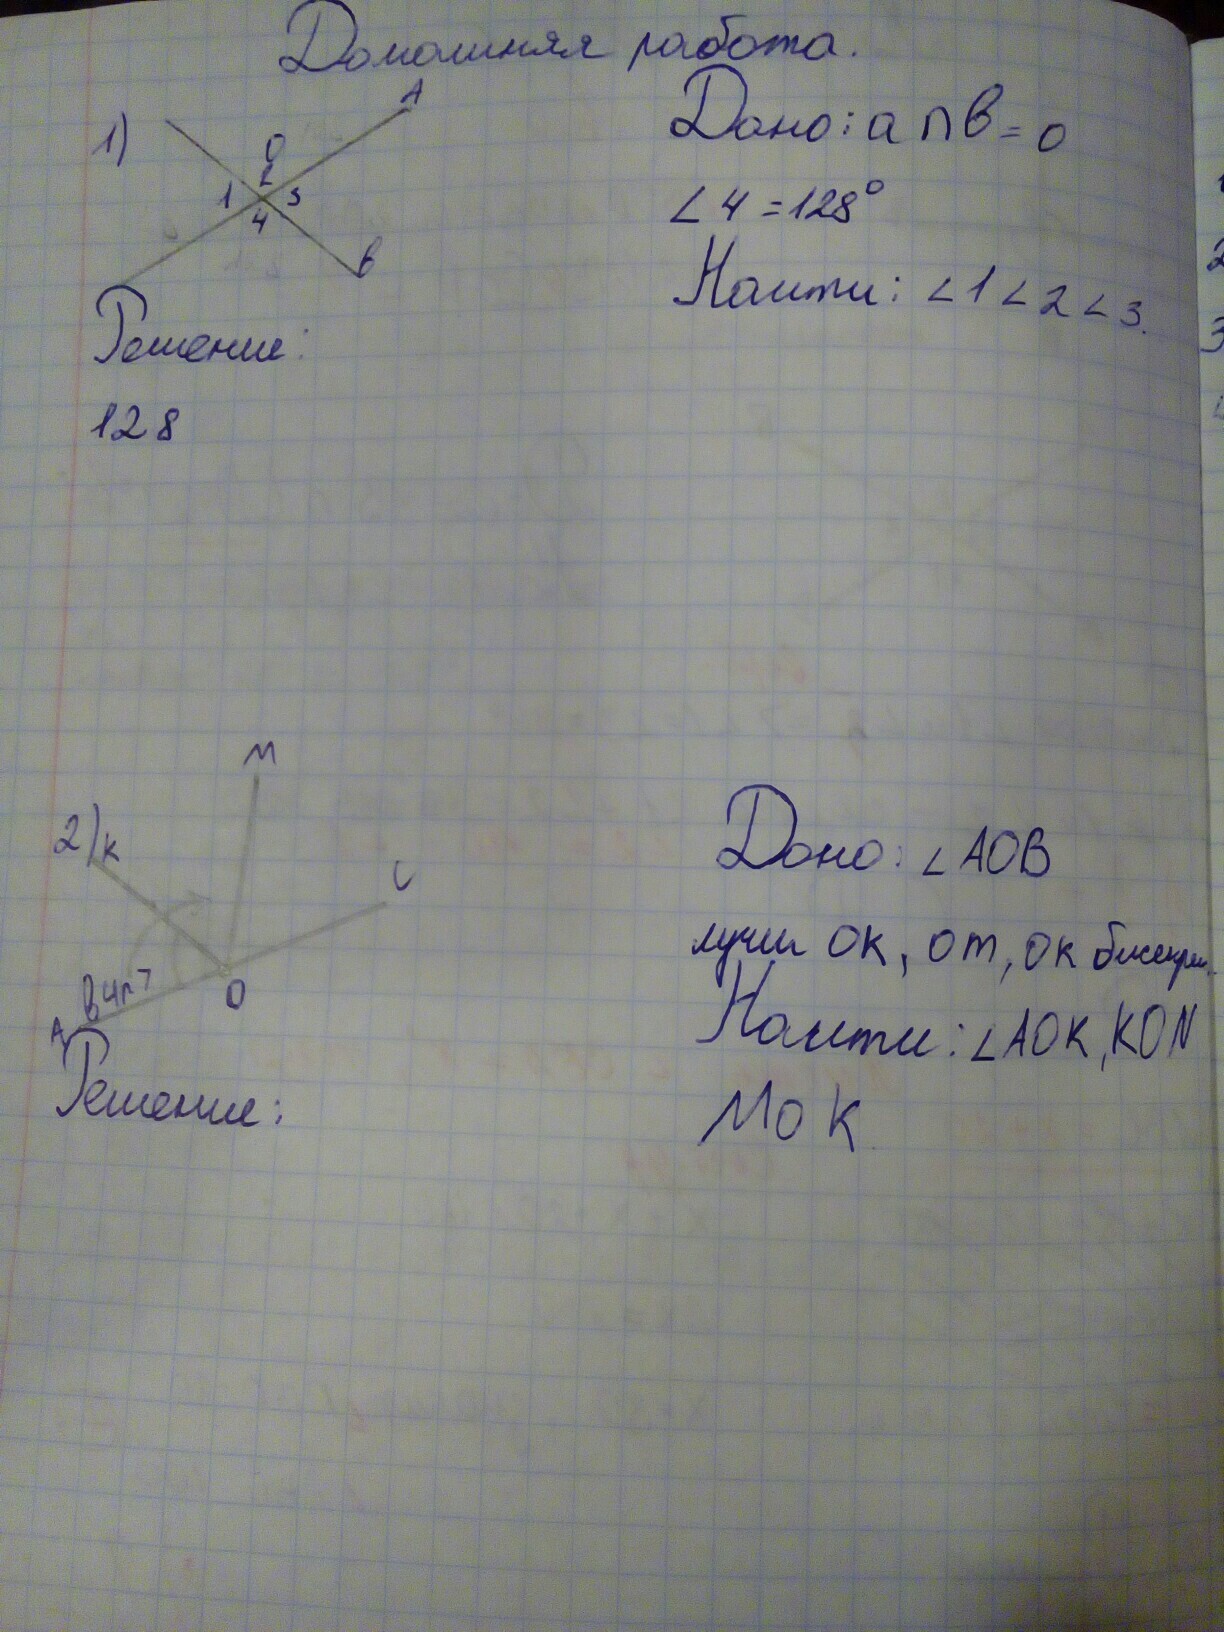 Домашняя работа.
1)
A
O
2
1
3
4
B
Дано: a ∩ b = o
∠4 = 128°
Наити: ∠1 ∠2 ∠3.
Решение:
128
2)
M
K
C
O
A
Решение:
Дано: ∠AOB
лучи OK, OM, OK
Наити: ∠AOK, KON
MOK